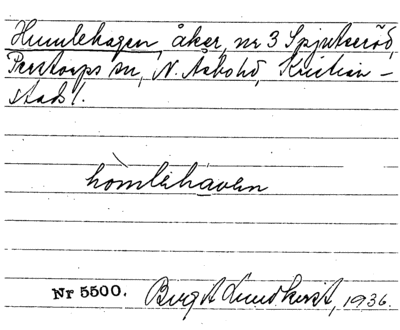 Humlehagen, åker, nr 3 Spjutseröd,
Perstorps sn, N. Åsbohd, Kristian-
stads l.
hòmlehàven
Nr 5500. Birgit Lundkvist, 1936.